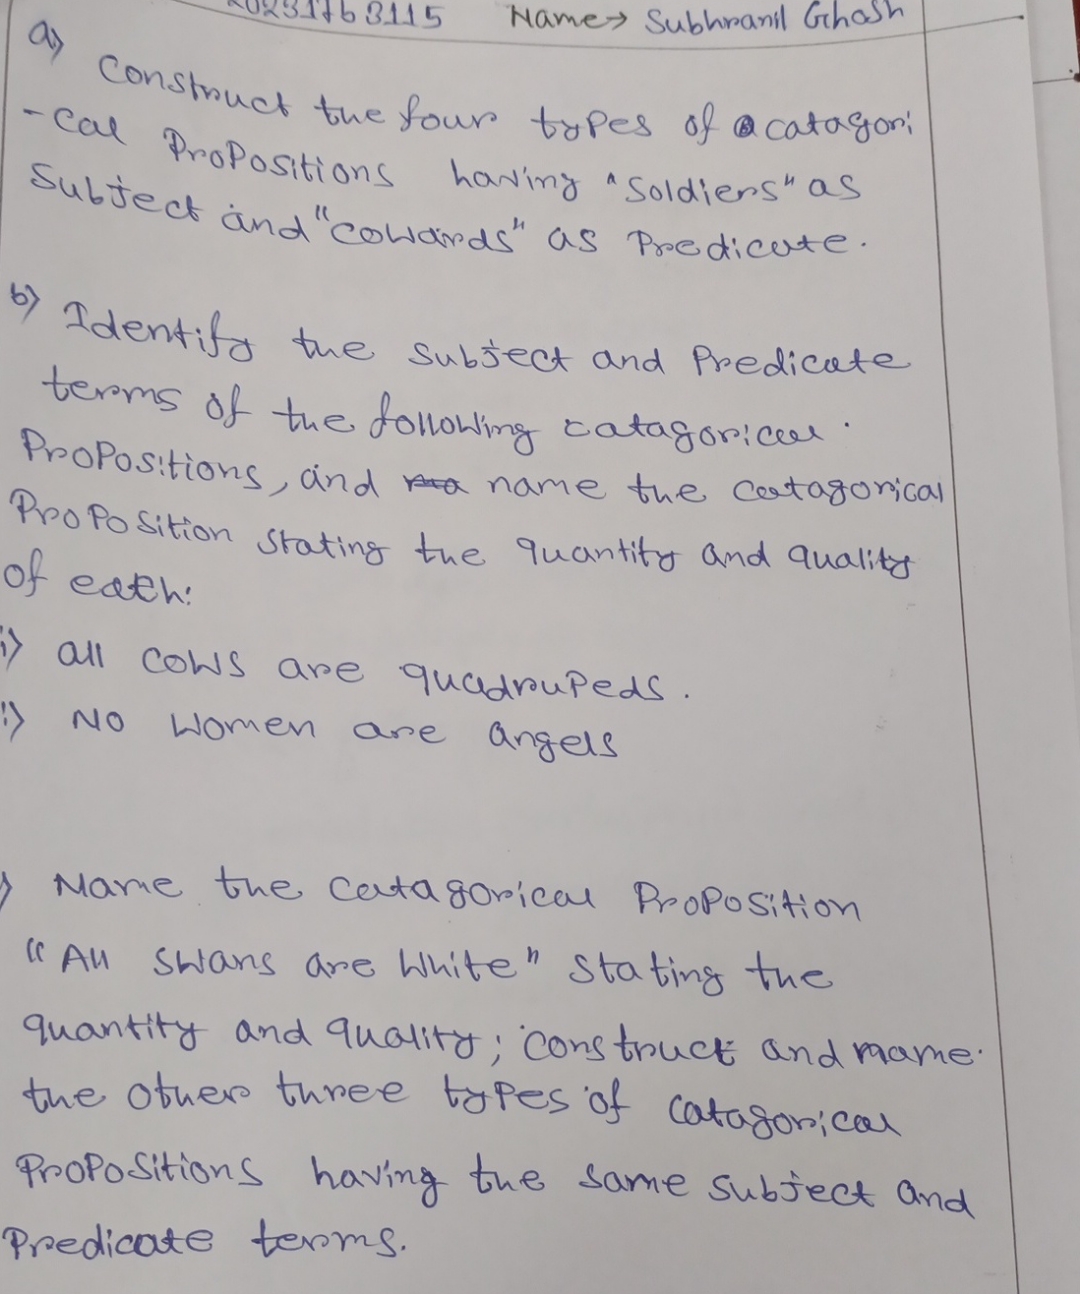 Name → Subhranil Ghosh
a) Construct the four types of catagori
-cal Propositions having "Soldiers" as
Subject and "cowards" as Predicate.
b) Identify the subject and Predicate
terms of the following catagorical
Propositions, and name the catagorical
Proposition stating the quantity and quality
of each:
i) all cows are quadrupeds.
i) No women are angels
) Name the catagorical Proposition
"All swans are white" stating the
quantity and quality; construct and name
the other three types of catagorical
Propositions having the same subject and
Predicate terms.